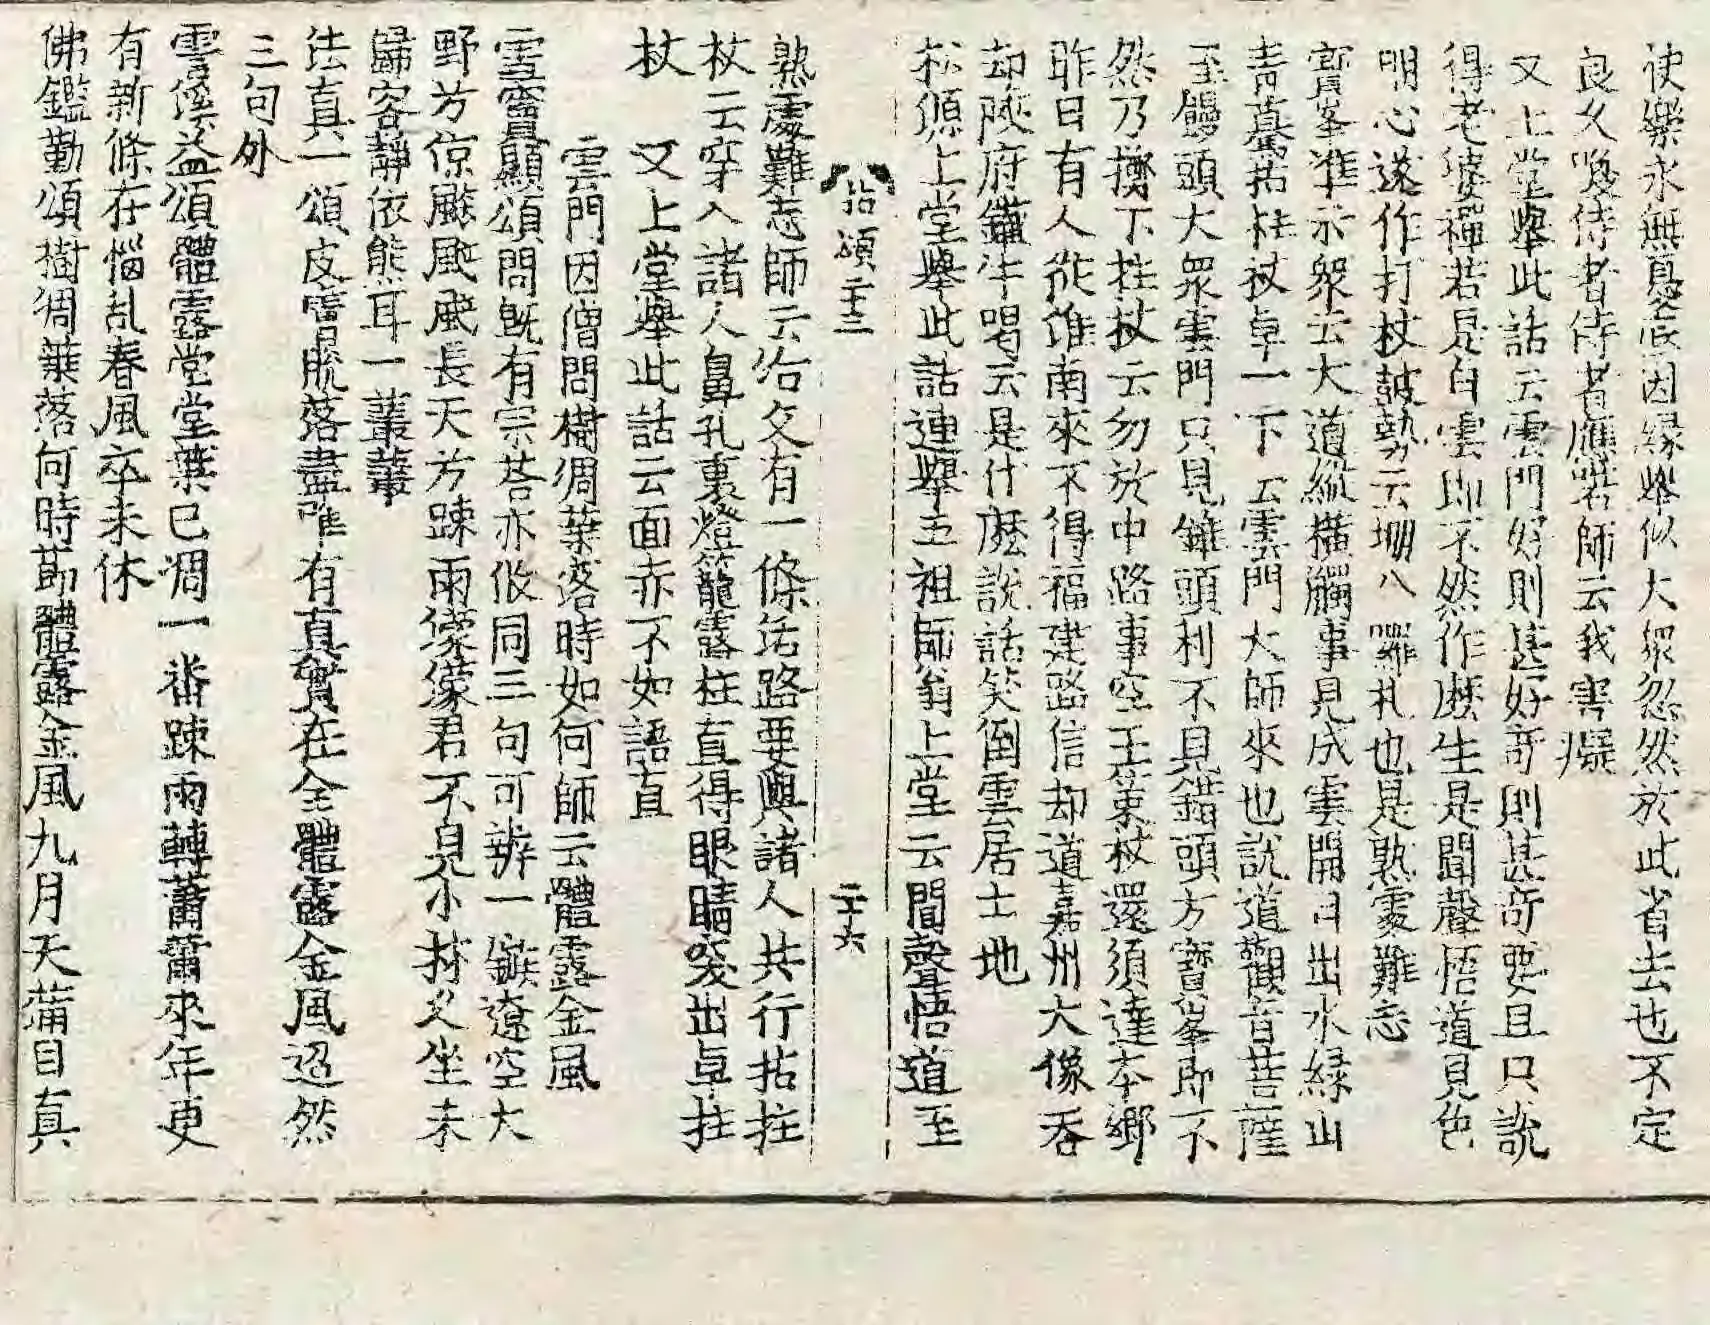 使樂永無憂底因緣擧似大衆忽然於此省去也不定
良久喚侍者侍者應喏師云我害癡
又上堂擧此話云雲門好則甚好奇則甚奇要且只說
得老婆禪若是白雲即不然作麽生是聞聲悟道見色
明心遂作打杖鼓勢云堋八囉札也是熟處難忘
寶峯準示衆云大道縱橫觸事見成雲開日出水綠山
靑驀拈柱杖卓一下云雲門大師來也說道觀音菩薩
至餬頭大衆雲門只見錐頭利不見鑿頭方寶峯即不
然乃擲下拄杖云勿於中路事空王策杖還須達本鄕
昨日有人從淮南來不得福建路信却道嘉州大像吞
却陝府鐵牛喝云是什麽說話笑倒雲居土地
松源上堂擧此話連擧五祖師翁上堂云聞聲悟道至
拈頌二十三
二十六
熟處難忘師云父父有一條活路要與諸人共行拈拄
杖云穿入諸人鼻孔裏燈籠露柱直得眼睛突出卓拄
杖　又上堂擧此話云面赤不如語直
雲門因僧問樹凋葉落時如何師云體露金風
雪竇顯頌問旣有宗荅亦攸同三句可辨一鏃遼空大
野芳凉颷颯颯長天芳踈雨濛濛君不見小林久坐未
歸客靜依熊耳一叢叢
法真一頌皮膚脫落盡唯有真實在全體露金風迢然
三句外
雲溪益頌體露堂堂葉已凋一番踈雨轉蕭蕭來年更
有新條在惱乱春風卒未休
佛鑑勤頌樹凋葉落何時節體露金風九月天蒲目真